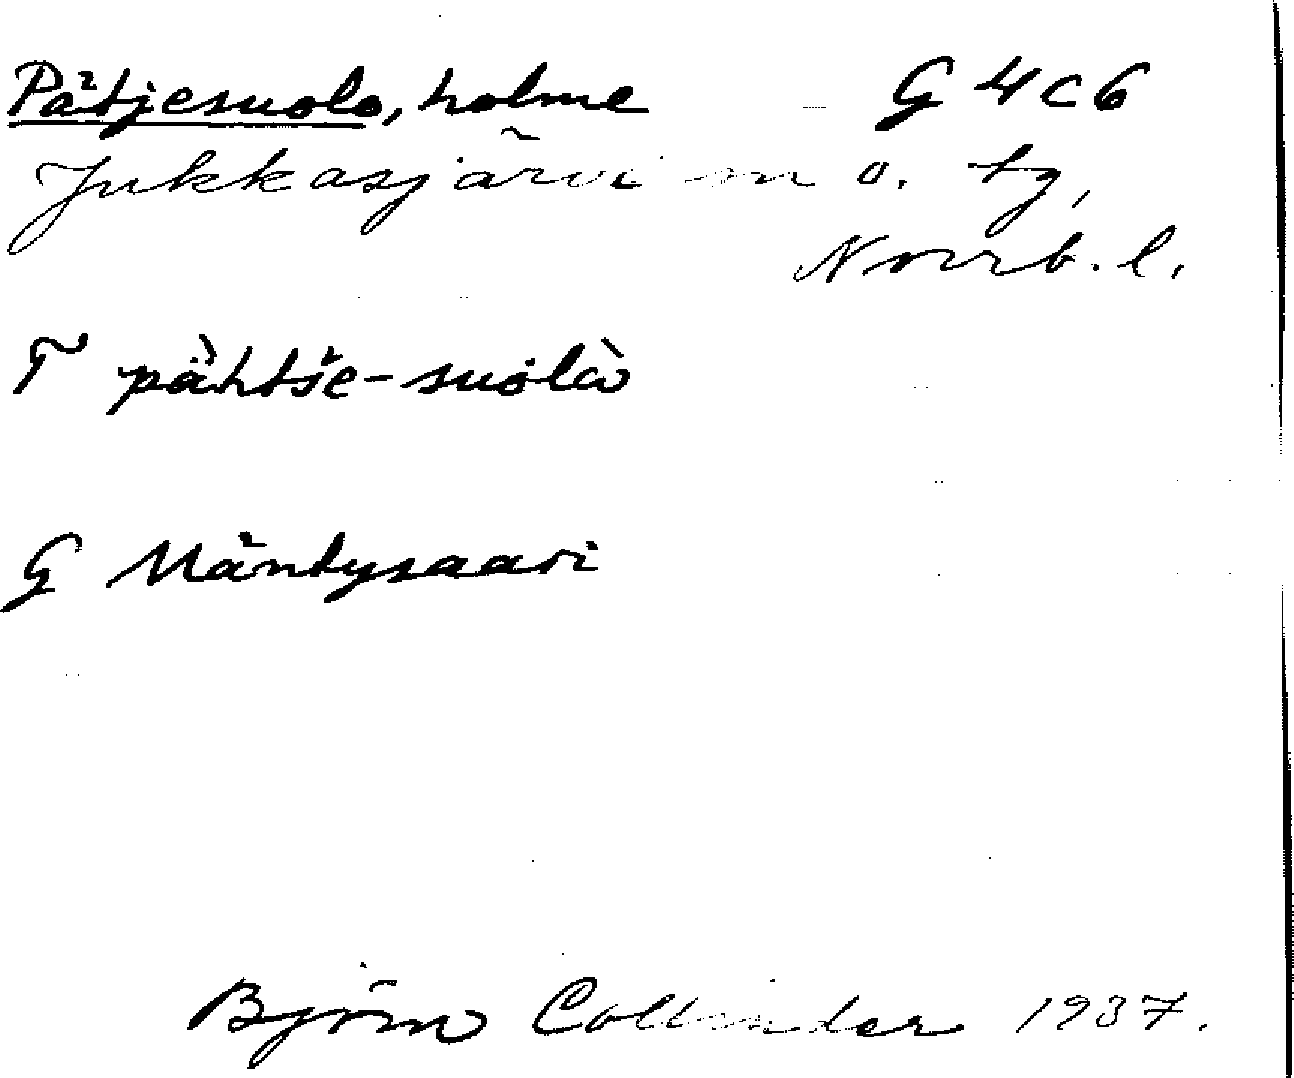 Pätjesuolo, holme G 4 C 6
Jukkasjärvi sn o. tg,
Norrb. l.
T pàhtše-suolò
G Mäntysaari
Björn Collinder 1937.